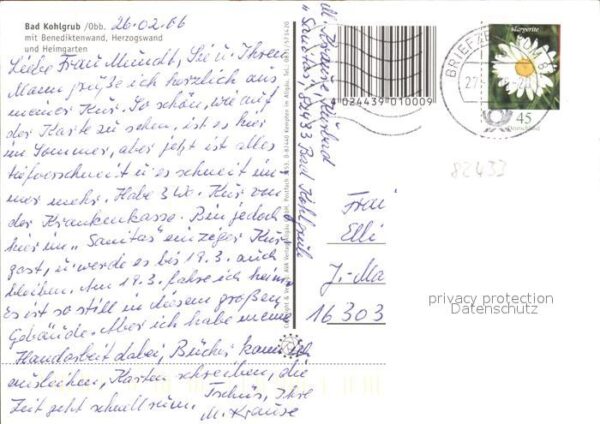 Bad Kohlgrub /Obb. 26.02.06
mit Benediktenwand, Herzogswand
und Heimgarten
Liebe Frau Mundt, Sie u. Ihren
Mann grüße ich herzlich aus
meiner Kur. So schön, wie auf
der Karte zu sehen, ist es hier
im Sommer, aber jetzt ist alles
tiefverschneit u. es schneit im-
mer mehr. Habe 3 Wo. Kur von
der Krankenkasse. Bin jedoch
hier im "Sanitas" einziger Kur-
gast, u. werde es bis 19.3. auch
bleiben. Am 19.3. fahre ich heim.
Es ist so still in diesem großen
Gebäude. Aber ich habe meine
Handarbeit dabei, Bücher kann ich
ausleihen, Karten schreiben, die
Zeit geht schnell rum. Tschüs, Ihre
M. Krause
M. Krause Kurbad
"Sanitas", 82433 Bad Kohlgrub
024439 010009
BRIEFZE
27
Margerite
45
Deutschland
82433
Frau
Elli
J.-Ma
16303
privacy protection
Datenschutz